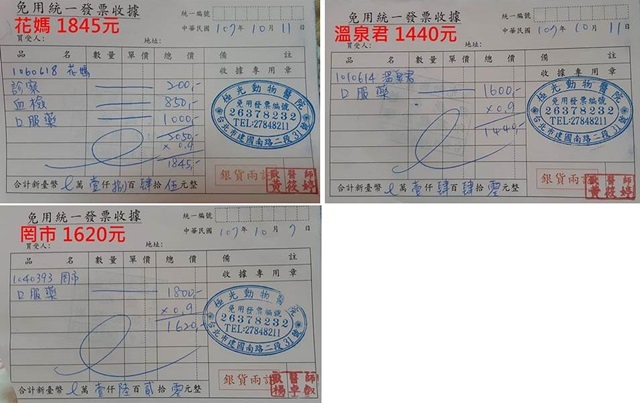 免用統一發票收據
花媽 1845元
統一編號
中華民國 107年 10月 11日
買受人: 地址:
品名 數量 單價 總價 備註
收據專用章
1060618 花媽
診察 200,-
血檢 850,-
口服藥 1000,-
2050,-
x 0.9
1845,-
極光動物醫院
免用發票編號
26378232
TEL:27848211
台北市建國南路二段31號
銀貨兩訖
獸醫師
黃筱婷
合計新臺幣 0萬壹仟捌百肆拾伍元整
免用統一發票收據
溫泉君 1440元
統一編號
中華民國 107年 10月 11日
買受人: 地址:
品名 數量 單價 總價 備註
收據專用章
1010614 溫泉君
口服藥 1600,-
x 0.9
1440,-
極光動物醫院
免用發票編號
26378232
TEL:27848211
台北市建國南路二段31號
銀貨兩訖
獸醫師
黃筱婷
合計新臺幣 0萬壹仟肆百肆拾零元整
免用統一發票收據
罔市 1620元
統一編號
中華民國 107年 10月 7日
買受人: 地址:
品名 數量 單價 總價 備註
收據專用章
1040393 罔市
口服藥 1800,-
x 0.9
1620,-
極光動物醫院
免用發票編號
26378232
TEL:27848211
台北市建國南路二段31號
銀貨兩訖
獸醫師
合計新臺幣 0萬壹仟陸百貳拾零元整